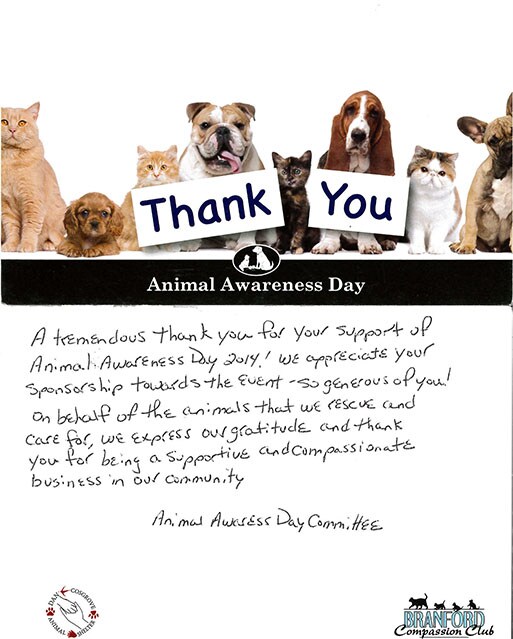 Thank You
Animal Awareness Day
A tremendous thank you for your support of
Animal Awareness Day 2014! We appreciate your
sponsorship towards the event - so generous of you!
On behalf of the animals that we rescue and
care for, we express our gratitude and thank
you for being a supportive and compassionate
business in our community
Animal Awaress Day Committee
DAN COSGROVE
ANIMAL SHELTER
BRANFORD
Compassion Club